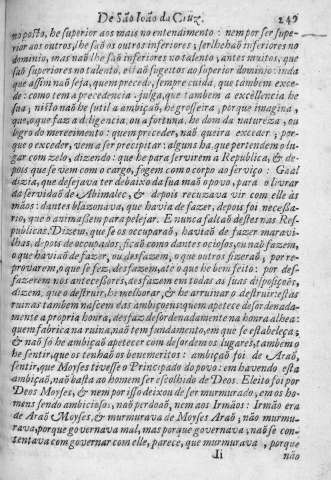 De São Ioão da Cruz. 249
no posto, he superior aos mais no entendimento : nem por ser supe-
rior aos outros, lhe saõ os outros inferiores ; serlhehaõ inferiores no
dominio, mas naõ lhe saõ inferiores no talento, antes muitos, que
saõ superiores no talento, estaõ sugeitos ao superior dominio: inda
que assim naõ seja, quem precede, sempre cuida, que tambem exce-
de: como tem a precedencia, julga, que tambem a excellencia he
sua; nisto naõ he sutil a ambiçaõ, he grosseira, porque imagina,
que, o que faz a diligencia, ou a fortuna, he dom da natureza, ou
logro do merecimento: quem preceder, naõ queira exceder ; por-
que o exceder, vem a ser precipitar: alguns ha, que pertendem o lu-
gar com zelo, dizendo: que he para servirem a Republica, & de-
pois que se vem com o cargo, fogem com o corpo ao serviço : Gaal
dizia, que desejava ter debaixo da sua maõ o povo, para o livrar
da servidaõ de Abimalec, & depois recuzava vir com elle às
mãos: dantes blazonava, que havia de fazer, depois foi necessa-
rio, que o animassem para pelejar. E nunca faltaõ destes nas Res-
publicas. Dizem, que se os occuparaõ, haviaõ de fazer maravi-
lhas, depois de occupados, ficaõ como dantes ociosos, ou naõ fazem,
o que haviaõ de fazer, ou desfazem, o que outros fizeraõ, por re-
provarem, o que se fez, desfazem, atè o que he bem feito: por des-
fazerem nos antecessores, desfazem em todas as suas disposiçoẽs,
dizem, que o destruir, he melhorar, & he arruinar o destruir: estas
ruinas tambem nascem das ambiçoens; quem apetece desordenada-
mente a propria honra, desfaz desordenadamente na honra alhea:
quem fabrica na ruina, naõ tem fundamento, em que se estabeleça;
& naõ só he ambiçaõ apetecer com desordem os lugares, tambem o
he sentir, que os tenhaõ os benemeritos: ambiçaõ foi de Araõ,
sentir, que Moyses tivesse o Principado do povo: em havendo esta
ambiçaõ, naõ basta ao homem ser escolhido de Deos. Eleito foi por
Deos Moyses, & nem por isso deixou de ser murmurado ; em os ho-
mens sendo ambiciosos, naõ perdoaõ, nem aos Irmãos: Irmão era
de Araõ Moyses, & murmurava de Moyses Araõ; não murmu-
rava, porque governava mal, mas porque governava ; naõ se con-
tentava com governar com elle, parece, que murmurava , porque
Ii não